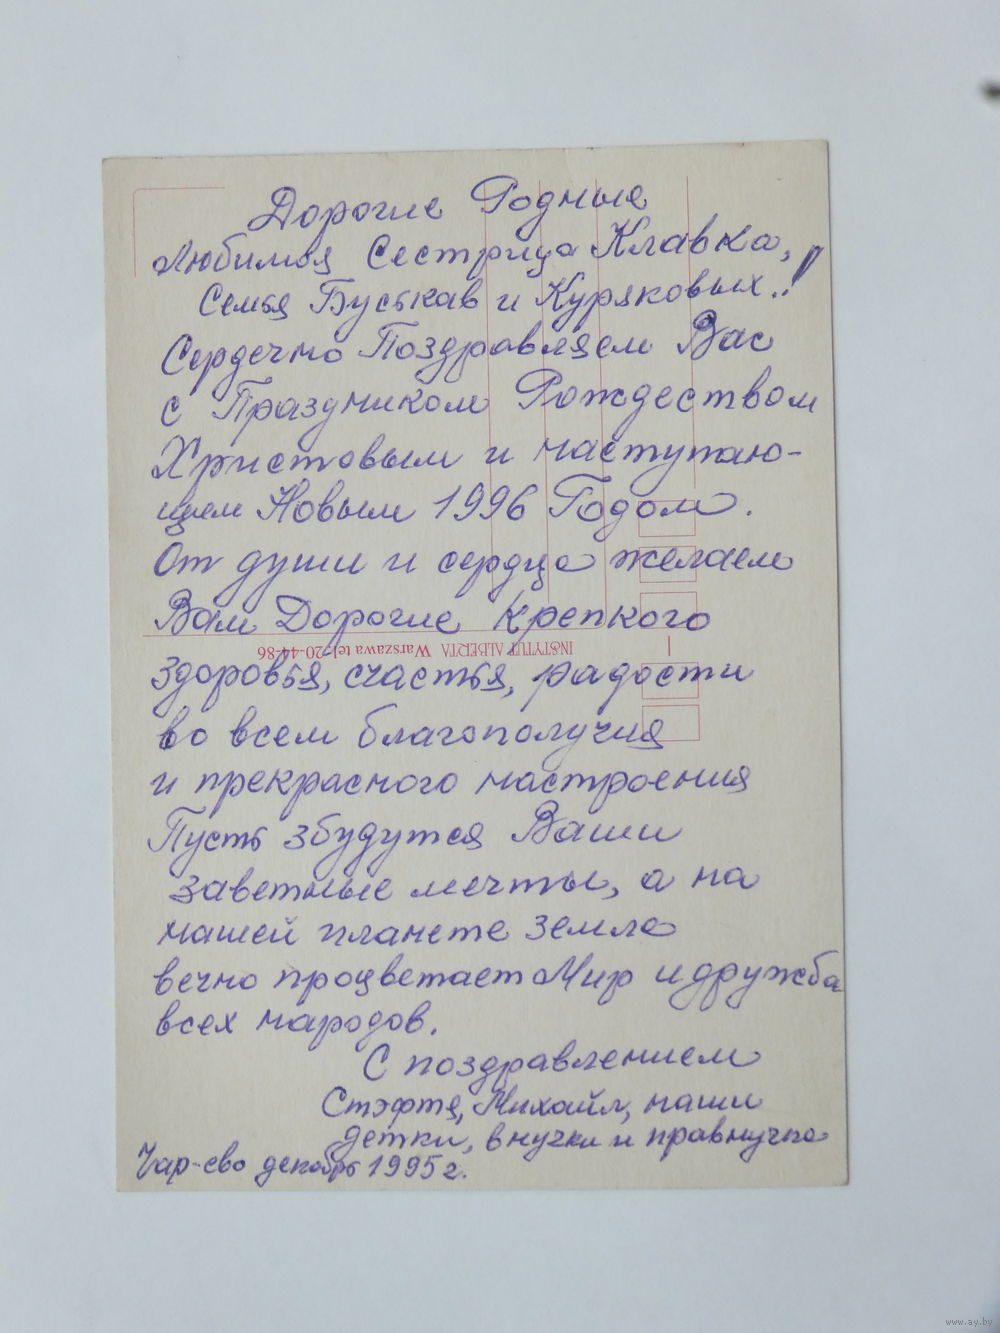 Дорогие Родные
Любимая Сестрица Клавка,
Семья Буськав и Куряковых.!
Сердечно Поздравляем Вас
с Праздником Рождеством
Христовым и наступаю-
щем Новым 1996 Годом.
От души и сердца желаем
Вам Дорогие Крепкого
INSTYTUT ALBERTA Warszawa tel. 20-44-86
здоровья, счастья, радости
во всем благополучия
и прекрасного настроения
Пусть збудутся Ваши
заветные мечты, а на
нашей планете земле
вечно процветает Мир и дружба
всех народов.
С поздравлением
Стэфтя, Михайл, наши
детки, внучки и правнучка
декабрь 1995 г.
www.ay.by